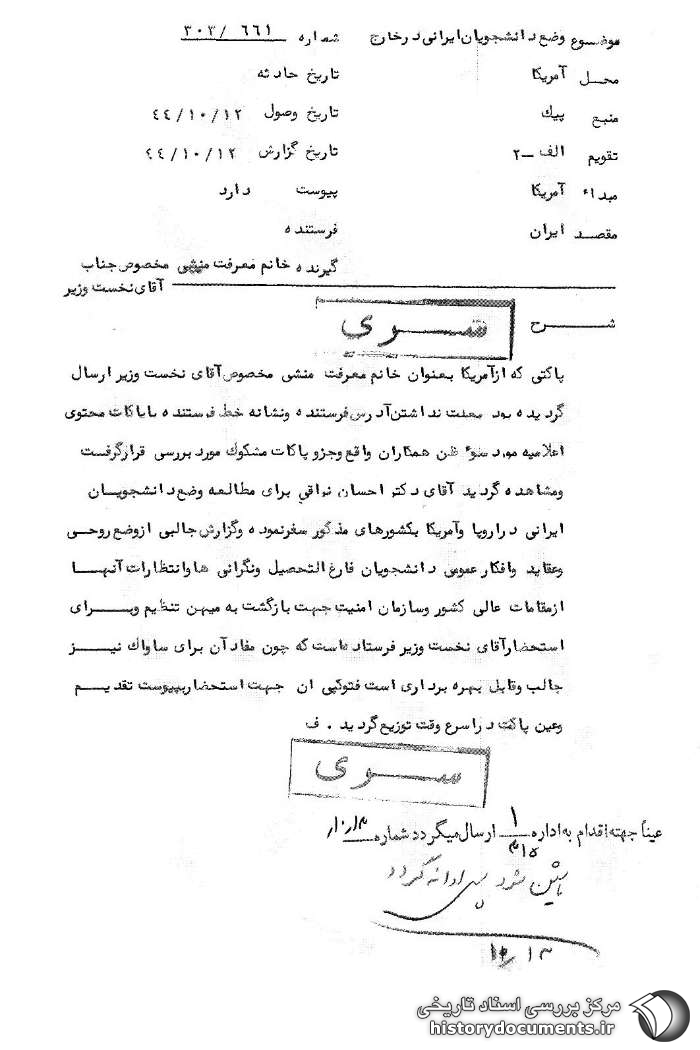 موضوع وضع دانشجویان ایرانی درخارج شماره ۳۰۳/ ۶۶۱
محل آمریکا تاریخ حادثه
منبع پیک تاریخ وصول ۴۴/۱۰/۱۲
تقویم الف -۲ تاریخ گزارش ۴۴/۱۰/۱۲
مبداء آمریکا پیوست دارد
مقصد ایران فرستنده
گیرنده خانم معرفت منشی مخصوص جناب
آقای نخست وزیر
شرح
سری
پاکتی که ازآمریکا بعنوان خانم معرفت منشی مخصوص آقای نخست وزیر ارسال
گردیده بود بعلت نداشتن آدرس فرستنده ونشانه خط فرستنده باپاکات محتوی
اعلامیه مورد سوء ظن همکاران واقع وجزو پاکات مشکوک مورد بررسی قرارگرفست
ومشاهده گردید آقای دکتر احسان نراقی برای مطالعه وضع دانشجویان
ایرانی دراروپا وآمریکا بکشورهای مذکور سفرنموده وگزارش جالبی ازوضع روحی
وعقاید وافکار عمومی دانشجویان فارغ التحصیل ونگرانی هاوانتظارات آنها
ازمقامات عالی کشور وسازمان امنیت جهت بازگشت به میهن تنظیم وبرای
استحضارآقای نخست وزیر فرستاده است که چون مفاد آن برای ساواک نیز
جالب وقابل بهره برداری است فتوکپی ان جهت استحضار بپیوست تقدیم
وعین پاکت دراسرع وقت توزیع گردید . ف
سری
عیناً جهته اقدام به اداره ۱/۳۱۵ ارسال میگردد شماره ۱۰٫۱۳
ماشین شود سپس ارائه گردد
۱۰٫۱۳
مرکز بررسی اسناد تاریخی
historydocuments.ir